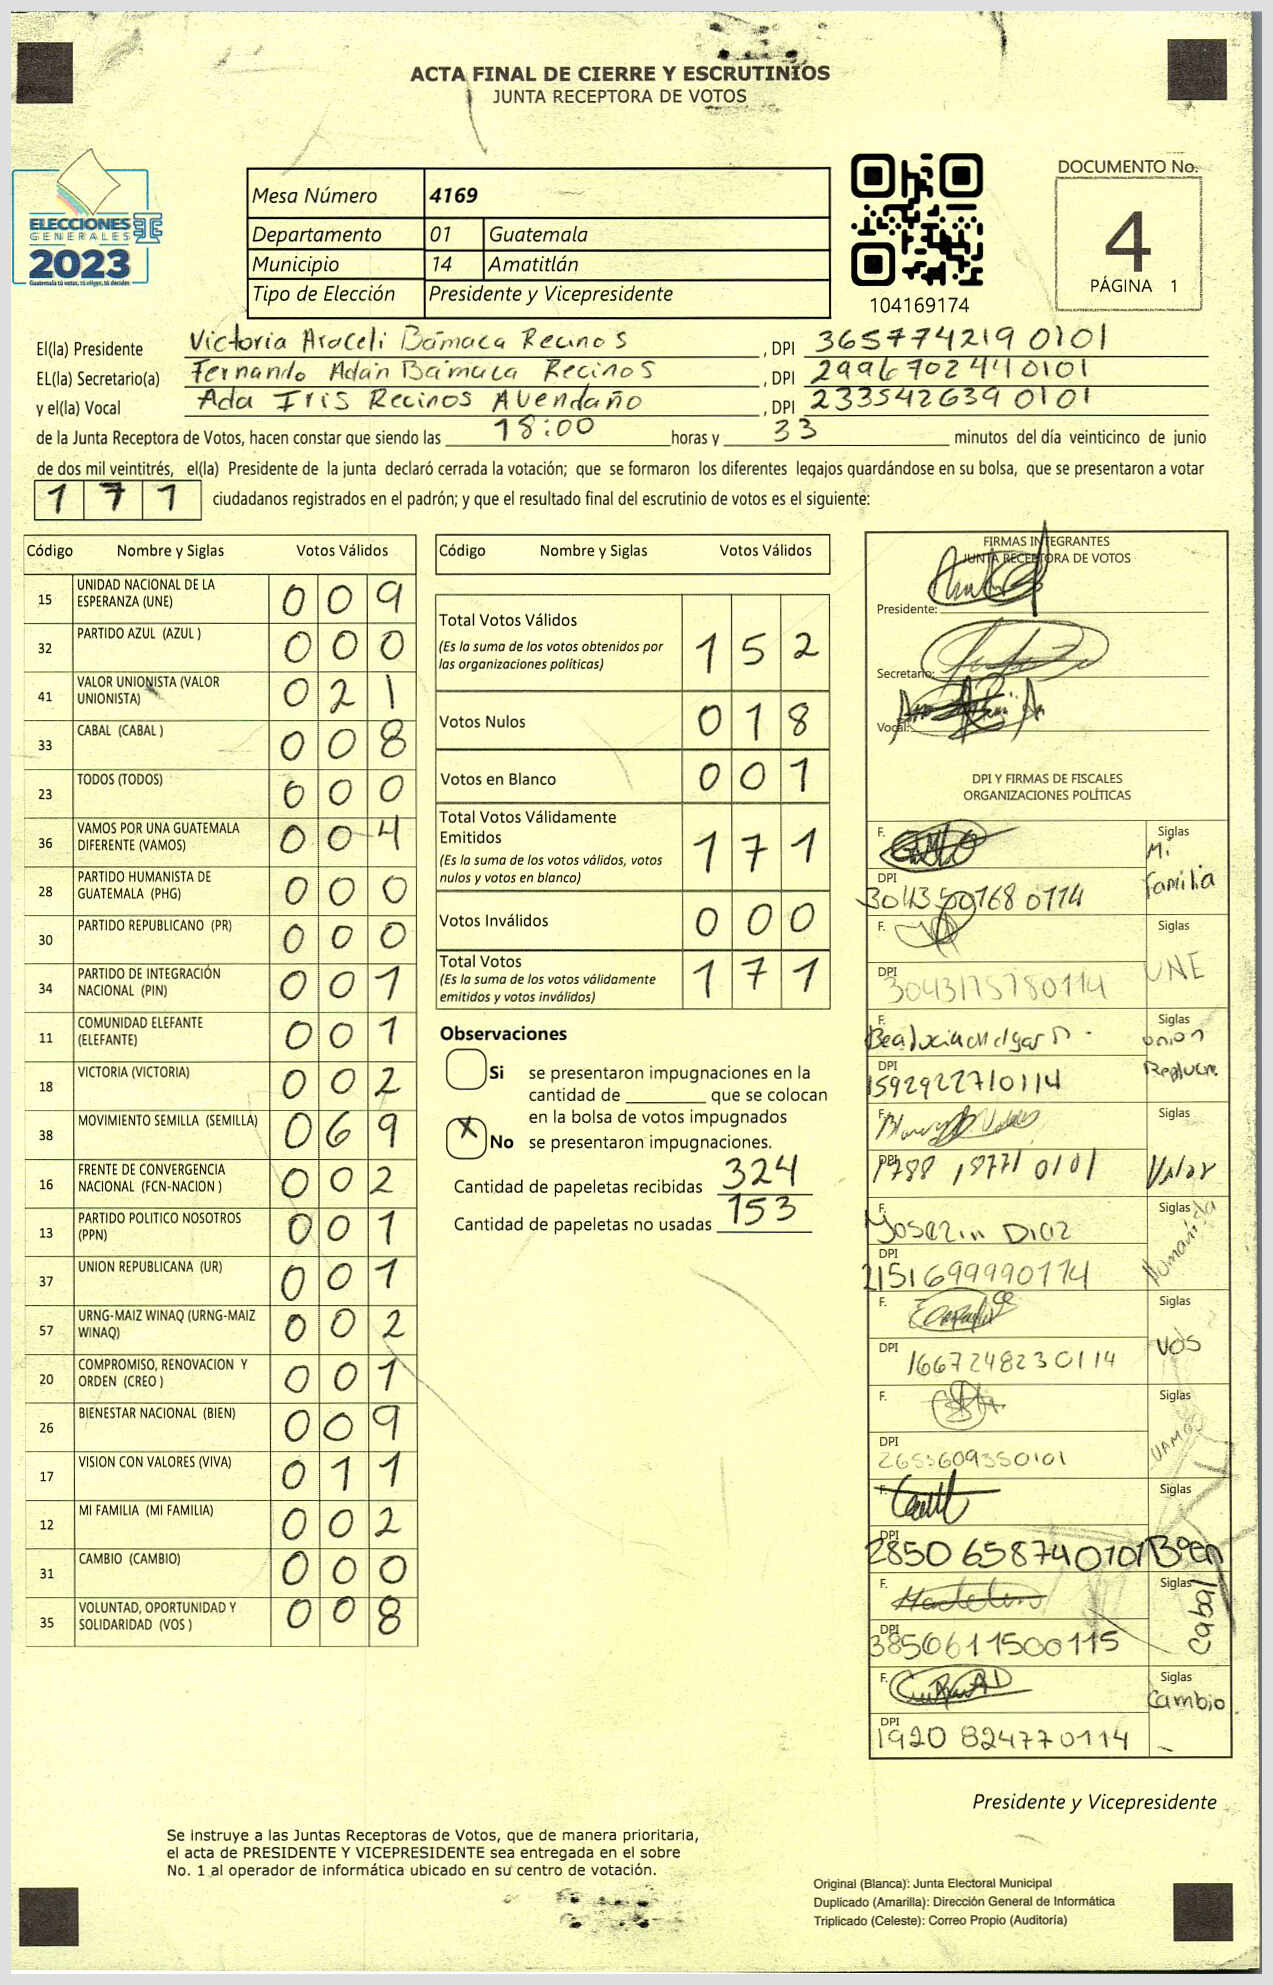 ACTA FINAL DE CIERRE Y ESCRUTINIOS
JUNTA RECEPTORA DE VOTOS
ELECCIONES
GENERALES
2023
Guatemala tú votas, tú eliges, tú decides
Mesa Número 4169
Departamento 01 Guatemala
Municipio 14 Amatitlán
Tipo de Elección Presidente y Vicepresidente
104169174
DOCUMENTO No.
4
PÁGINA 1
El(la) Presidente Victoria Araceli Bámaca Recinos , DPI 365774219 0101
EL(la) Secretario(a) Fernando Adán Bámaca Recinos , DPI 299670244 0101
y el(la) Vocal Ada Iris Recinos Avendaño , DPI 233542639 0101
de la Junta Receptora de Votos, hacen constar que siendo las 18:00 horas y 33 minutos del día veinticinco de junio
de dos mil veintitrés, el(la) Presidente de la junta declaró cerrada la votación; que se formaron los diferentes legajos quardándose en su bolsa, que se presentaron a votar
171 ciudadanos registrados en el padrón; y que el resultado final del escrutinio de votos es el siguiente:
Código Nombre y Siglas Votos Válidos
15 UNIDAD NACIONAL DE LA ESPERANZA (UNE) 009
32 PARTIDO AZUL (AZUL ) 000
41 VALOR UNIONISTA (VALOR UNIONISTA) 021
33 CABAL (CABAL ) 008
23 TODOS (TODOS) 000
36 VAMOS POR UNA GUATEMALA DIFERENTE (VAMOS) 004
28 PARTIDO HUMANISTA DE GUATEMALA (PHG) 000
30 PARTIDO REPUBLICANO (PR) 000
34 PARTIDO DE INTEGRACIÓN NACIONAL (PIN) 001
11 COMUNIDAD ELEFANTE (ELEFANTE) 001
18 VICTORIA (VICTORIA) 002
38 MOVIMIENTO SEMILLA (SEMILLA) 069
16 FRENTE DE CONVERGENCIA NACIONAL (FCN-NACION ) 002
13 PARTIDO POLITICO NOSOTROS (PPN) 001
37 UNION REPUBLICANA (UR) 001
57 URNG-MAIZ WINAQ (URNG-MAIZ WINAQ) 002
20 COMPROMISO, RENOVACION Y ORDEN (CREO ) 001
26 BIENESTAR NACIONAL (BIEN) 009
17 VISION CON VALORES (VIVA) 011
12 MI FAMILIA (MI FAMILIA) 002
31 CAMBIO (CAMBIO) 000
35 VOLUNTAD, OPORTUNIDAD Y SOLIDARIDAD (VOS ) 008
Código Nombre y Siglas Votos Válidos
Total Votos Válidos 152
(Es la suma de los votos obtenidos por
las organizaciones políticas)
Votos Nulos 018
Votos en Blanco 001
Total Votos Válidamente
Emitidos 171
(Es la suma de los votos válidos, votos
nulos y votos en blanco)
Votos Inválidos 000
Total Votos 171
(Es la suma de los votos válidamente
emitidos y votos inválidos)
Observaciones
Si se presentaron impugnaciones en la
cantidad de ________ que se colocan
en la bolsa de votos impugnados
X No se presentaron impugnaciones.
Cantidad de papeletas recibidas 324
Cantidad de papeletas no usadas 153
FIRMAS INTEGRANTES
JUNTA RECEPTORA DE VOTOS
Presidente:
Secretario:
Vocal:
DPI Y FIRMAS DE FISCALES
ORGANIZACIONES POLÍTICAS
F. Siglas Mi Familia
DPI 304350768 0114
F. Siglas UNE
DPI 3043175780114
F. Siglas Union
DPI 1592922710114
F. Siglas Valor
DPI 1788 18771 0101
F. Yoselin Diaz Siglas Humanista
DPI 2151699990114
F. Siglas VOS
DPI 1667248230114
F. Siglas VAMOS
DPI 2653609350101
F. Siglas Bien
DPI 2850658740101
F. Siglas Cabal
DPI 3850611500115
F. Siglas Cambio
DPI 1920 824770114
Presidente y Vicepresidente
Se instruye a las Juntas Receptoras de Votos, que de manera prioritaria,
el acta de PRESIDENTE Y VICEPRESIDENTE sea entregada en el sobre
No. 1 al operador de informática ubicado en su centro de votación.
Original (Blanca): Junta Electoral Municipal
Duplicado (Amarilla): Dirección General de Informática
Triplicado (Celeste): Correo Propio (Auditoría)